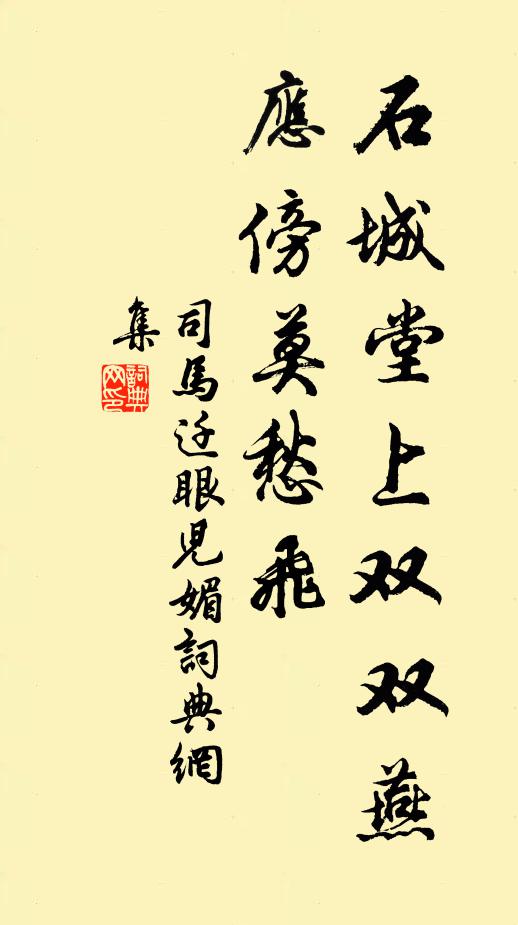 石城堂上双双燕
應傍莫愁飛
司馬迁眼児媚詞典網
集
詞典
网印